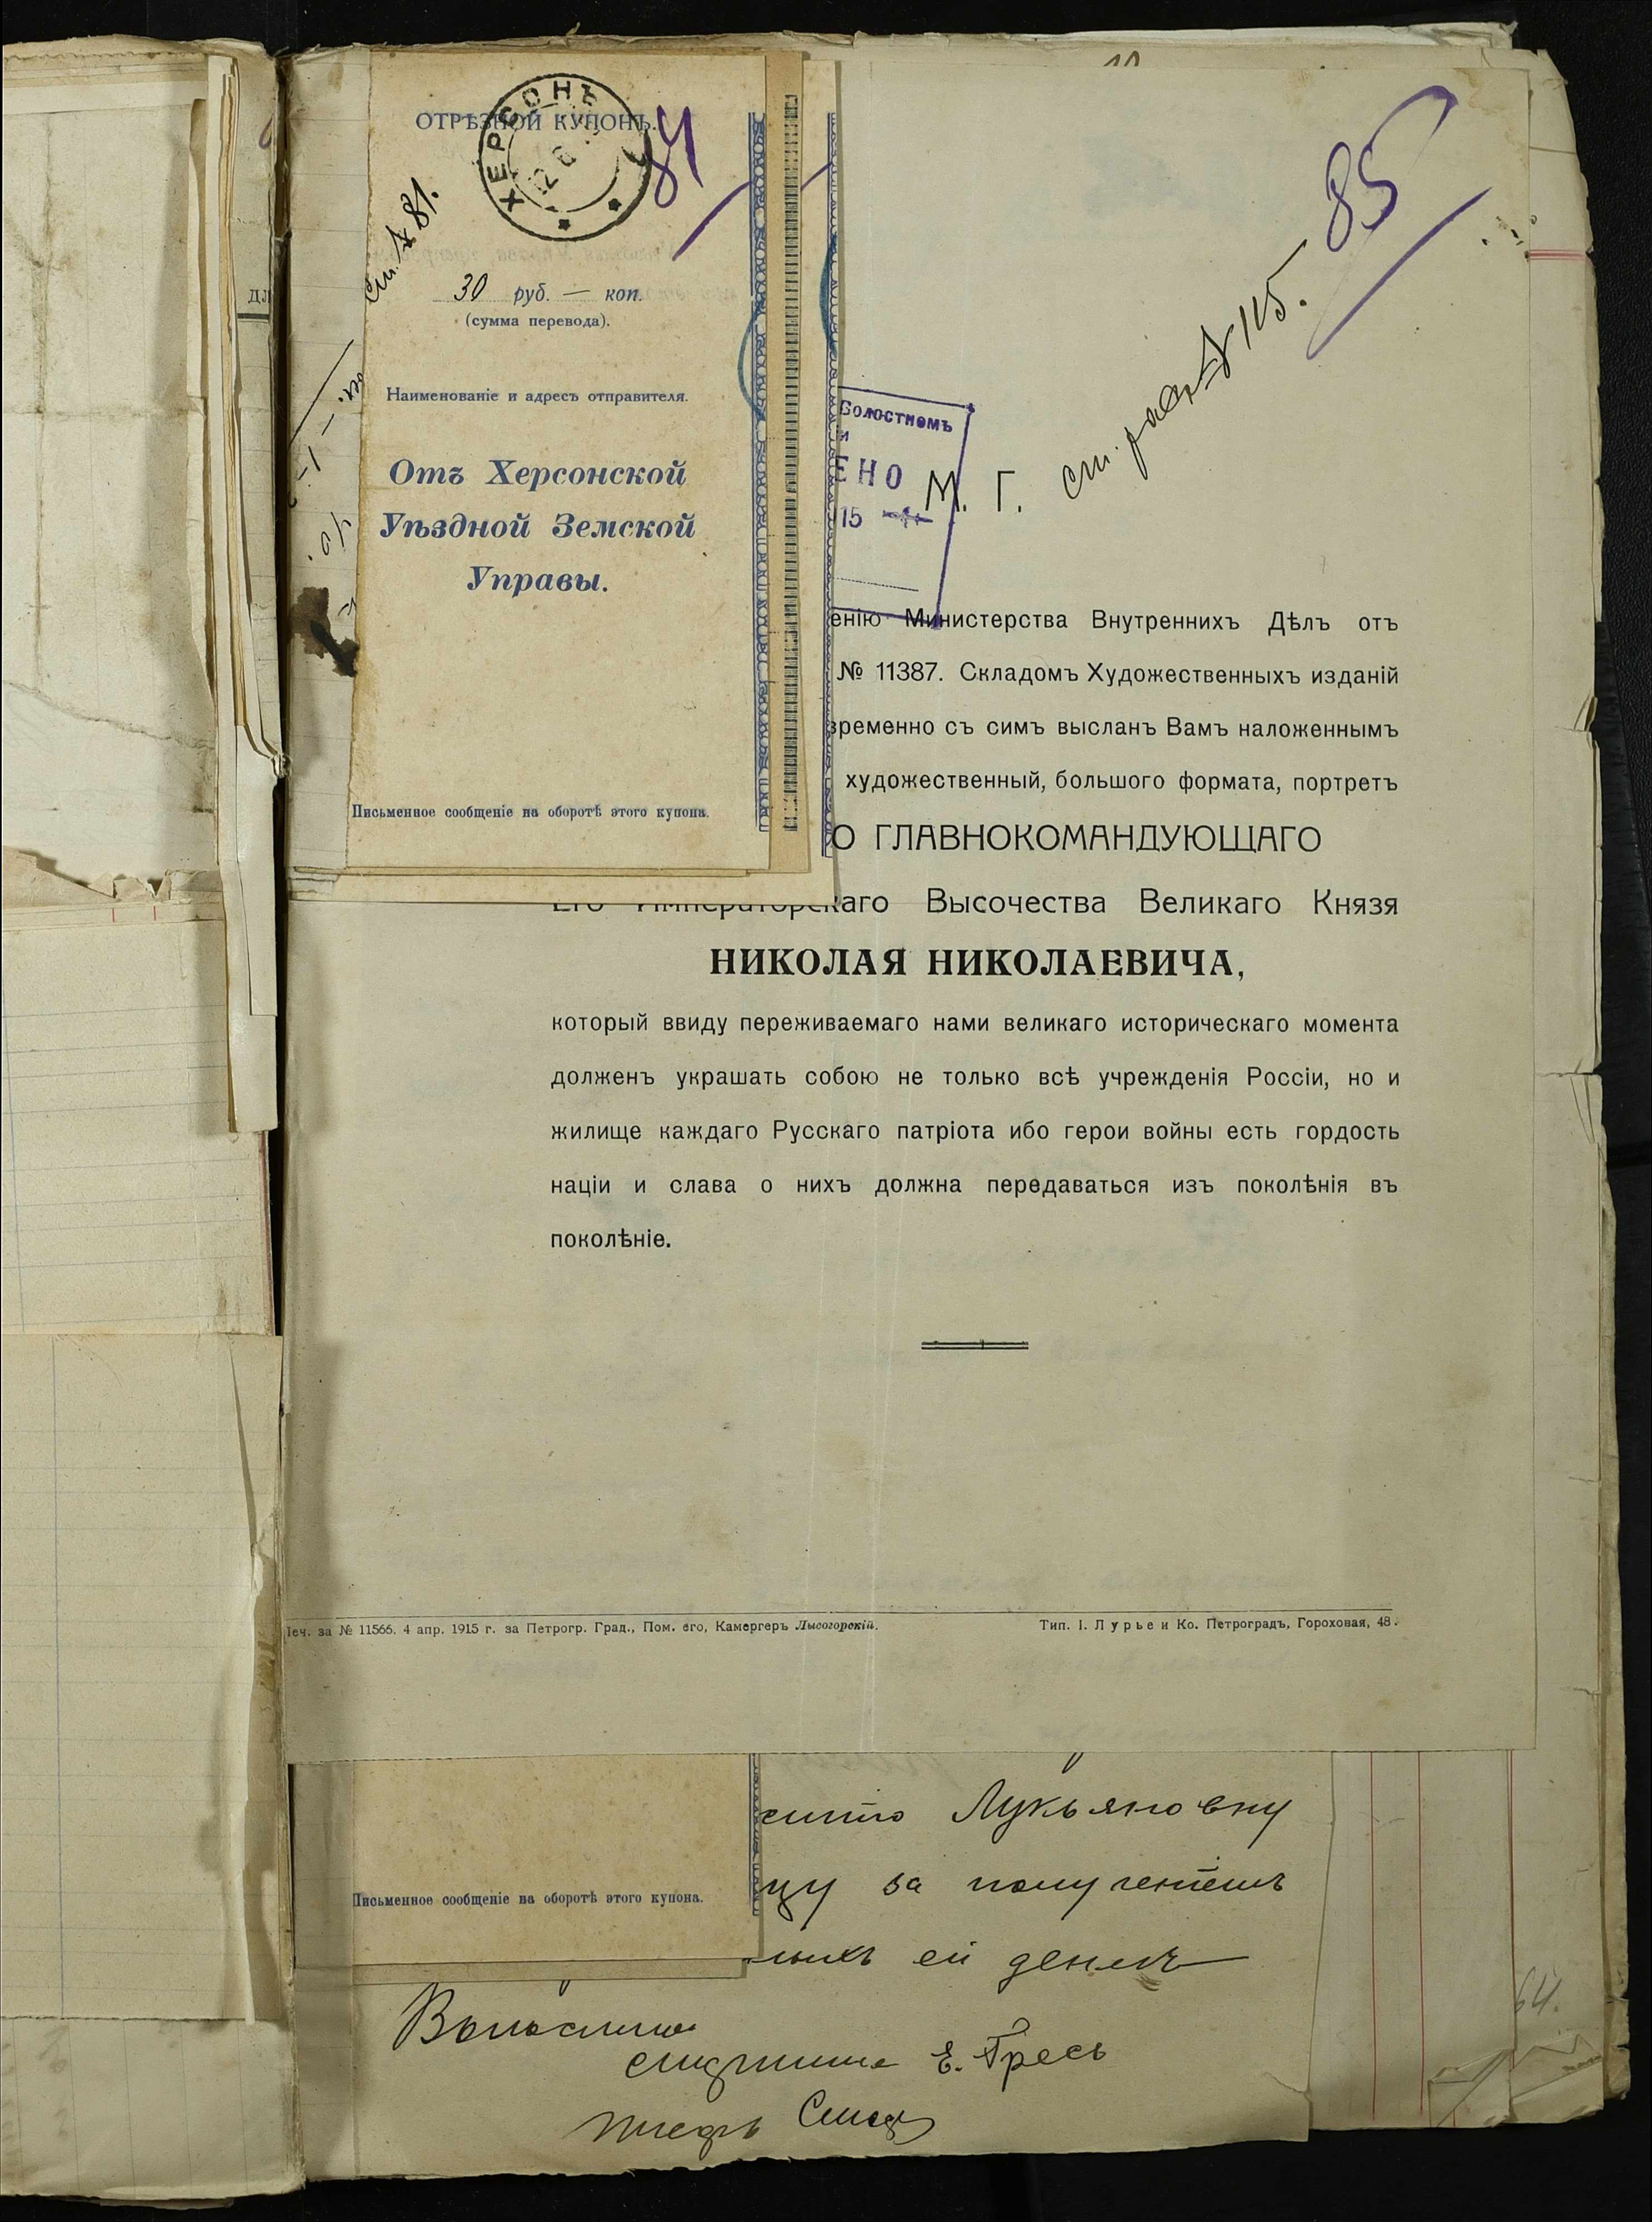 ОТРѢЗНОЙ КУПОНЪ.
ХЕРСОНЪ
12 6
84
см. № 81.
30 руб. — коп.
(сумма перевода).
Наименованіе и адресъ отправителя.
Отъ Херсонской
Уѣздной Земской
Управы.
Письменное сообщеніе на оборотѣ этого купона.
85
№ 115.
Волостномъ
и
ЕНО
15
М. Г.
енію Министерства Внутреннихъ Дѣлъ отъ
№ 11387. Складомъ Художественныхъ изданій
временно съ симъ высланъ Вамъ наложеннымъ
художественный, большого формата, портретъ
О ГЛАВНОКОМАНДУЮЩАГО
Его Императорскаго Высочества Великаго Князя
НИКОЛАЯ НИКОЛАЕВИЧА,
который ввиду переживаемаго нами великаго историческаго момента
долженъ украшать собою не только всѣ учрежденія Россіи, но и
жилище каждаго Русскаго патріота ибо герои войны есть гордость
націи и слава о нихъ должна передаваться изъ поколѣнія въ
поколѣніе.
Печ. за № 11566. 4 апр. 1915 г. за Петрогр. Град., Пом. его, Камергеръ Лысогорскій.
Тип. І. Лурье и Ко. Петроградъ, Гороховая, 48.
Лукьяновну
цу за полученіемъ
ей денегъ
Письменное сообщеніе на оборотѣ этого купона.
Волостной
старшина Е. Гресь
Писарь
64.